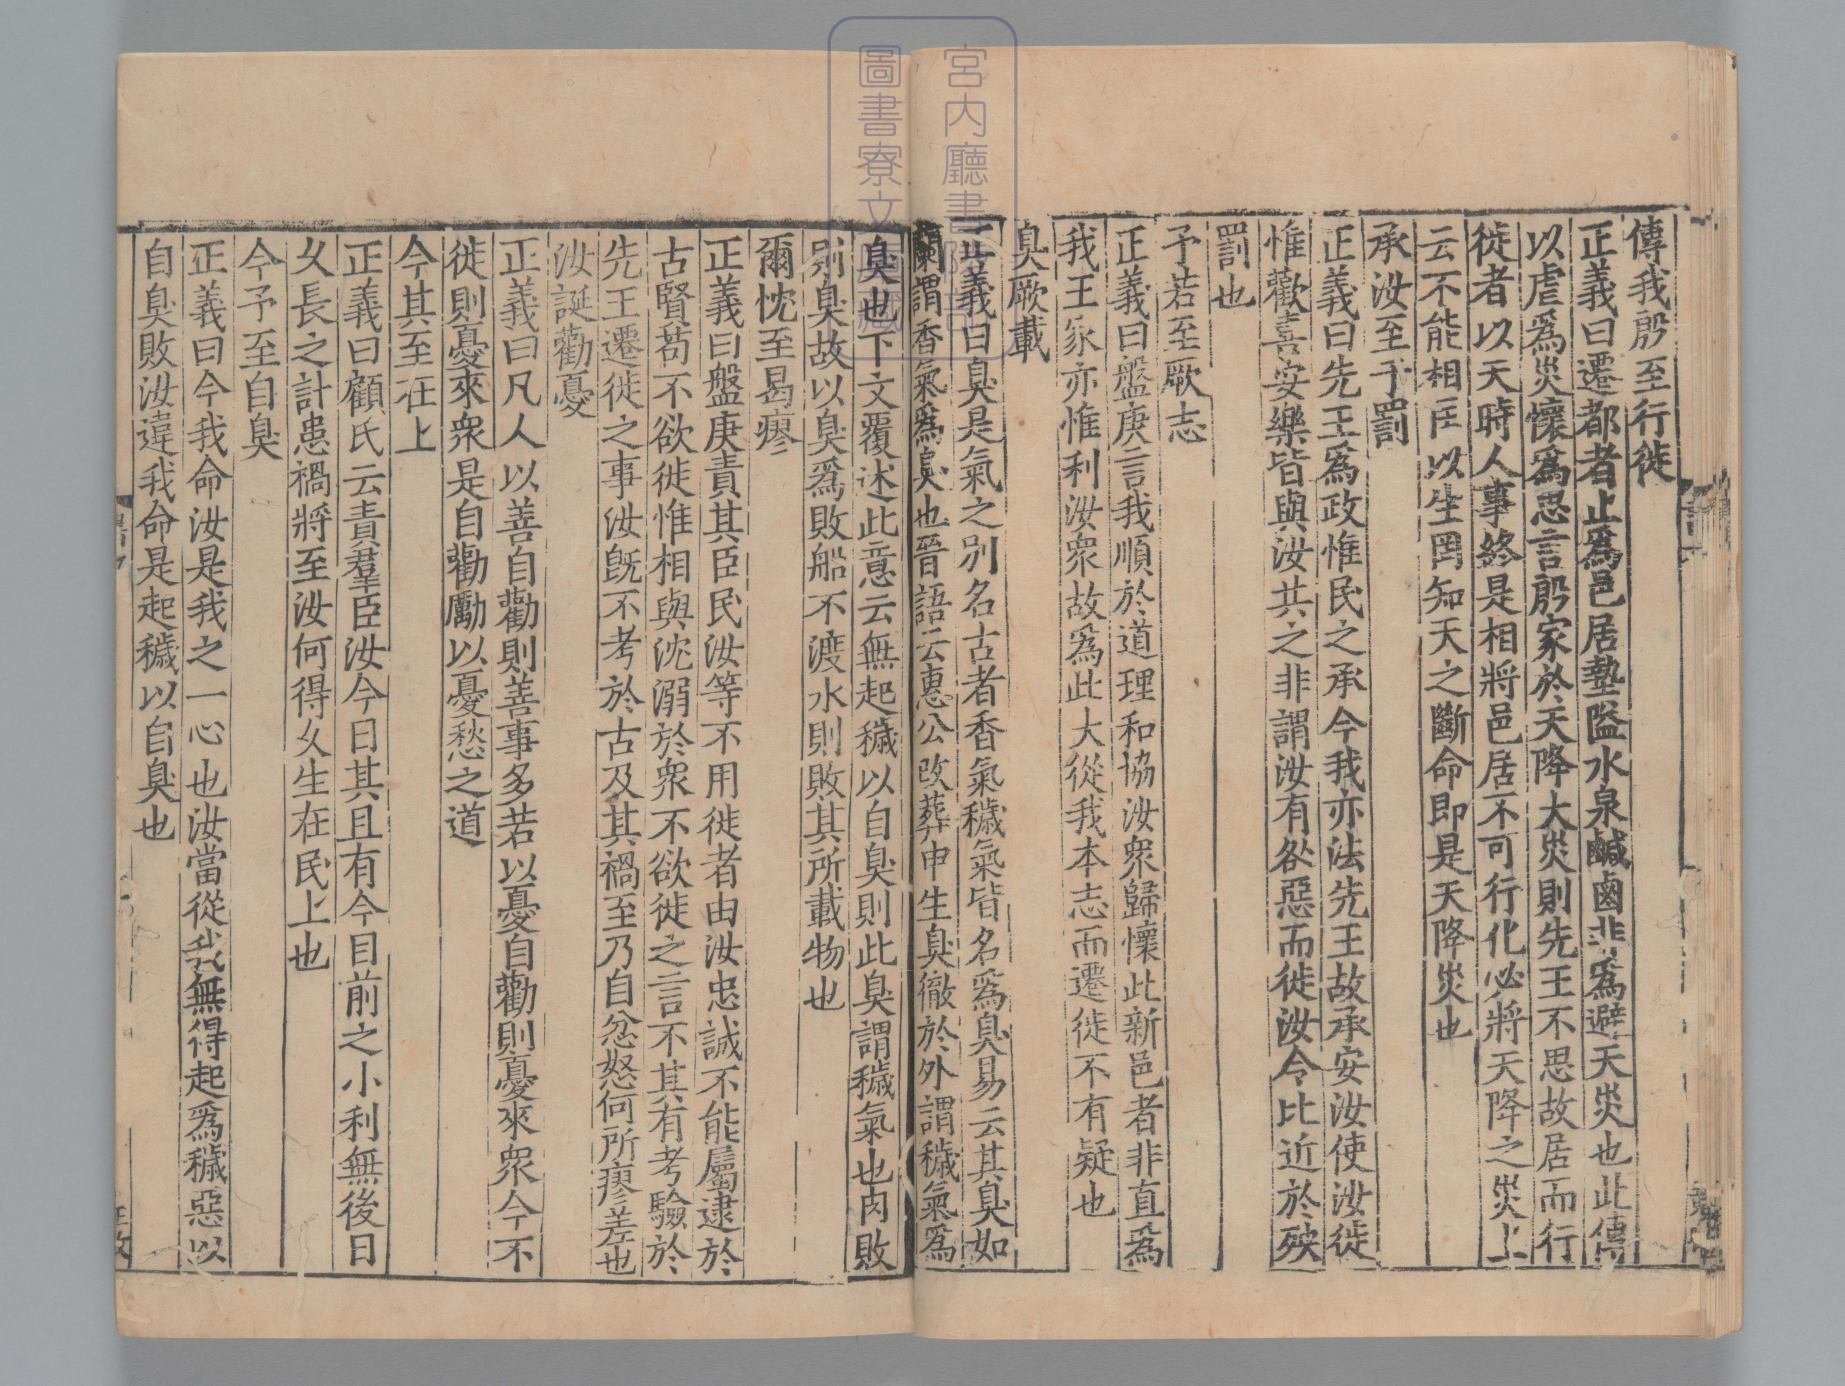 傳我殷至行徙
正義曰遷都者止爲邑居墊隘水泉鹹鹵非爲避天災也此傳
以虐爲災懷爲思言殷家於天降大災則先王不思故居而行
徙者以天時人事終是相將邑居不可行化必將天降之災上
云不能相匡以生罔知天之斷命即是天降災也
承汝至于罰
正義曰先王爲政惟民之承今我亦法先王故承安汝使汝徙
惟歡喜安樂皆與汝共之非謂汝有咎惡而徙汝令比近於殃
罰也
予若至厥志
正義曰盤庚言我順於道理和協汝衆歸懷此新邑者非直爲
我王家亦惟利汝衆故爲此大從我本志而遷徙不有疑也
臭厥載
正義曰臭是氣之別名古者香氣穢氣皆名爲臭易云其臭如
蘭謂香氣爲臭也晉語云惠公改葬申生臭徹於外謂穢氣爲
臭也下文覆述此意云無起穢以自臭則此臭謂穢氣也肉敗
則臭故以臭爲敗船不渡水則敗其所載物也
爾忱至曷瘳
正義曰盤庚責其臣民汝等不用徙者由汝忠誠不能屬逮於
古賢苟不欲徙惟相與沈溺於衆不欲徙之言不其有考驗於
先王遷徙之事汝旣不考於古及其禍至乃自忿怒何所瘳差也
汝誕勸憂
正義曰凡人以善自勸則善事多若以憂自勸則憂來衆今不
徙則憂來衆是自勸勵以憂愁之道
今其至在上
正義曰顧氏云責羣臣汝今日其且有今目前之小利無後日
久長之計患禍將至汝何得久生在民上也
今予至自臭
正義曰今我命汝是我之一心也汝當從我無得起爲穢惡以
自臭敗汝違我命是起穢以自臭也
宮内廳書陵部
圖書寮文庫藏